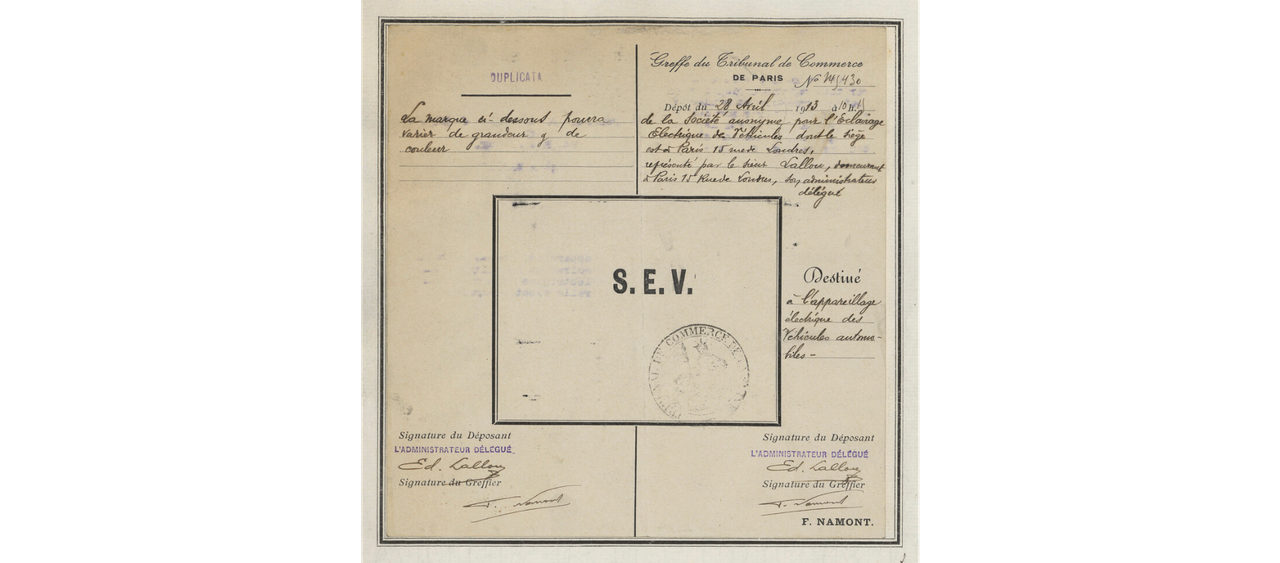 DUPLICATA
La marque ci-dessous pourra
varier de grandeur & de
couleur
Greffe du Tribunal de Commerce
DE PARIS
No
Dépôt du 28 Avril 1913 à 10h
de la Société anonyme pour l'Eclairage
Electrique des Véhicules dont le siège
est à Paris 15 rue de Londres,
représenté par le sieur Lallou, demeurant
à Paris 15 Rue de Londres, son administrateur
délégué
S. E. V.
TRIBUNAL DE COMMERCE DE
Destiné
à l'appareillage
électrique des
Véhicules automo-
biles -
Signature du Déposant
L'ADMINISTRATEUR DÉLÉGUÉ
Ed. Lallou
Signature du Greffier
F. Namont
Signature du Déposant
L'ADMINISTRATEUR DÉLÉGUÉ
Ed. Lallou
Signature du Greffier
F. Namont
F. NAMONT.